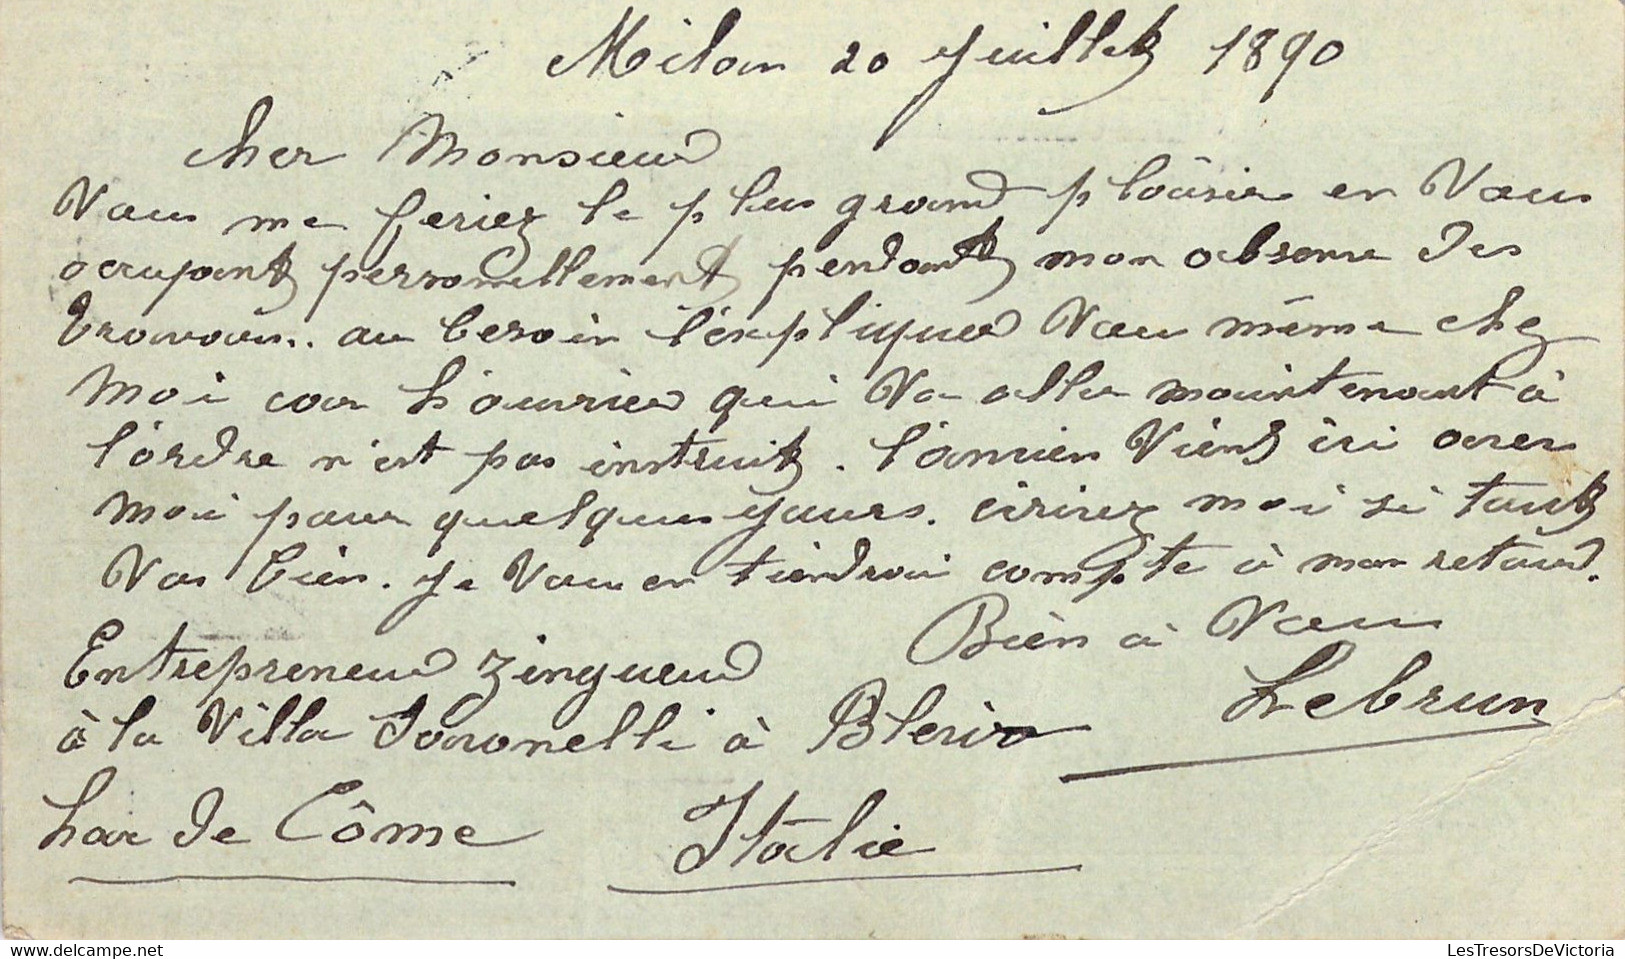 Milan 20 Juillet 1890
cher Monsieur
Vous me feriez le plus grand plaisir en Vous
occupant personnellement pendant mon absence des
travaux. au besoin l'expliquer Vous même chez
moi car l'ouvrier qui Va aller maintenant à
l'ordre n'est pas instruit. l'ancien Vient ici avec
moi pour quelques jours. écrivez moi si tout
Vas bien. je Vous en tiendrai compte à mon retour.
Bien à Vous
Lebrun
Entrepreneur Zingueur
à la Villa à Blevio
Lac de Côme Italie
LesTresorsDeVictoria